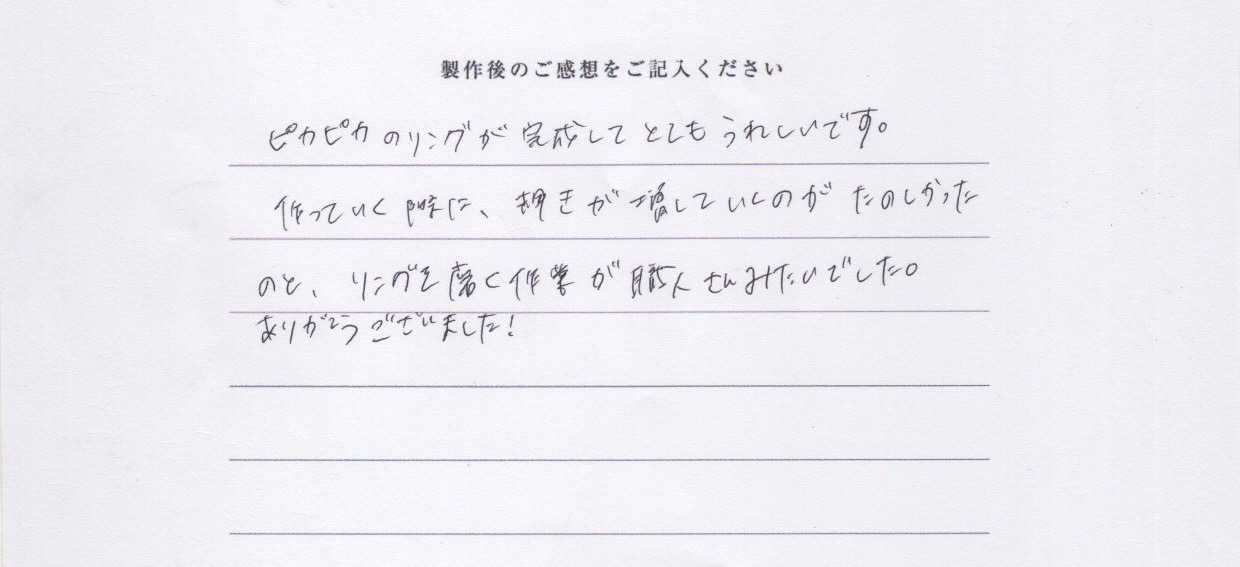 製作後のご感想をご記入ください
ピカピカのリングが完成してとてもうれしいです。
作っていく際に、輝きが増していくのがたのしかった
のと、リングを磨く作業が職人さんみたいでした。
ありがとうございました!